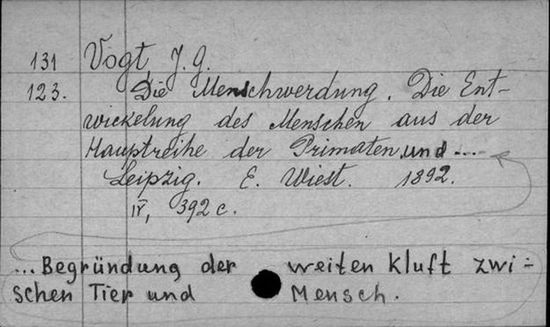 131 Vogt, J. G.
123. Die Menschwerdung. Die Ent-
wickelung des Menschen aus der
Hauptreihe der Primaten und ...
Leipzig. E. Wiest. 1892.
IV, 392 c.
... Begründung der weiten Kluft zwi-
schen Tier und Mensch.